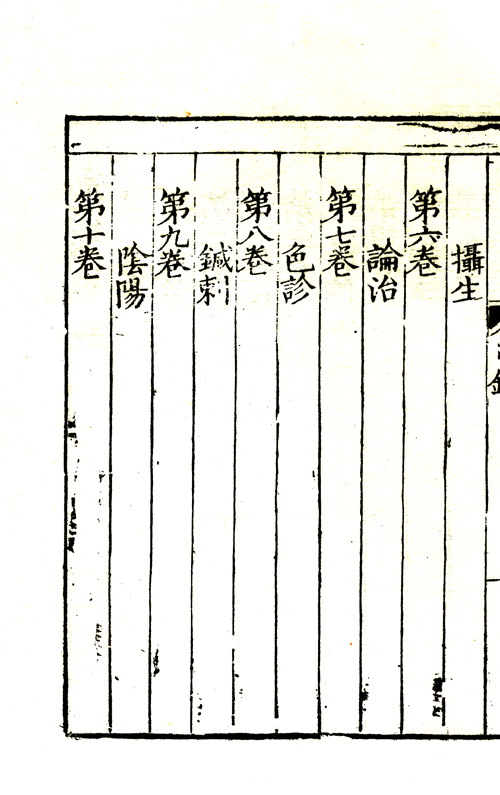 攝生
第六卷
論治
第七卷
色診
第八卷
鍼刺
第九卷
陰陽
第十卷